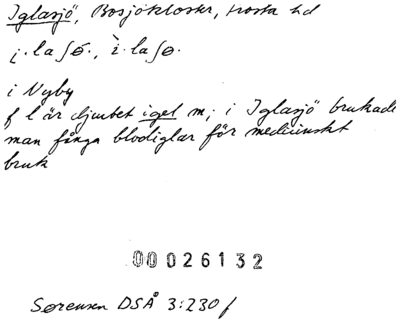 Iglasjö, Bosjökloster, Frosta hd
i Nyby
f l är djurbet igel m; i Iglasjö brukade
man fånga blodiglar för medicinskt
bruk
00026132
Sørensen DSÅ 3:230 f